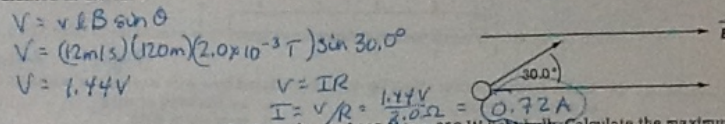 V = vlB sin θ
V = (12m/s)(120m)(2.0×10⁻³ T) sin 30.0°
V = 1.44V
V = IR
I = V/R = 1.44V/2.0Ω = 0.72A
30.0°
Calculate the maximu